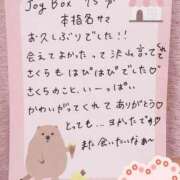 Joy Box 75分
本指名サマ
お久しぶりでした!!
会えてよかったって沢山言ってくれて
さくらもはぴはぴでした♡
さくらのこと、いーっぱい
かわいがってくれてありがとう♡
とっても…ヨかったです
また会いたいなぁ〜